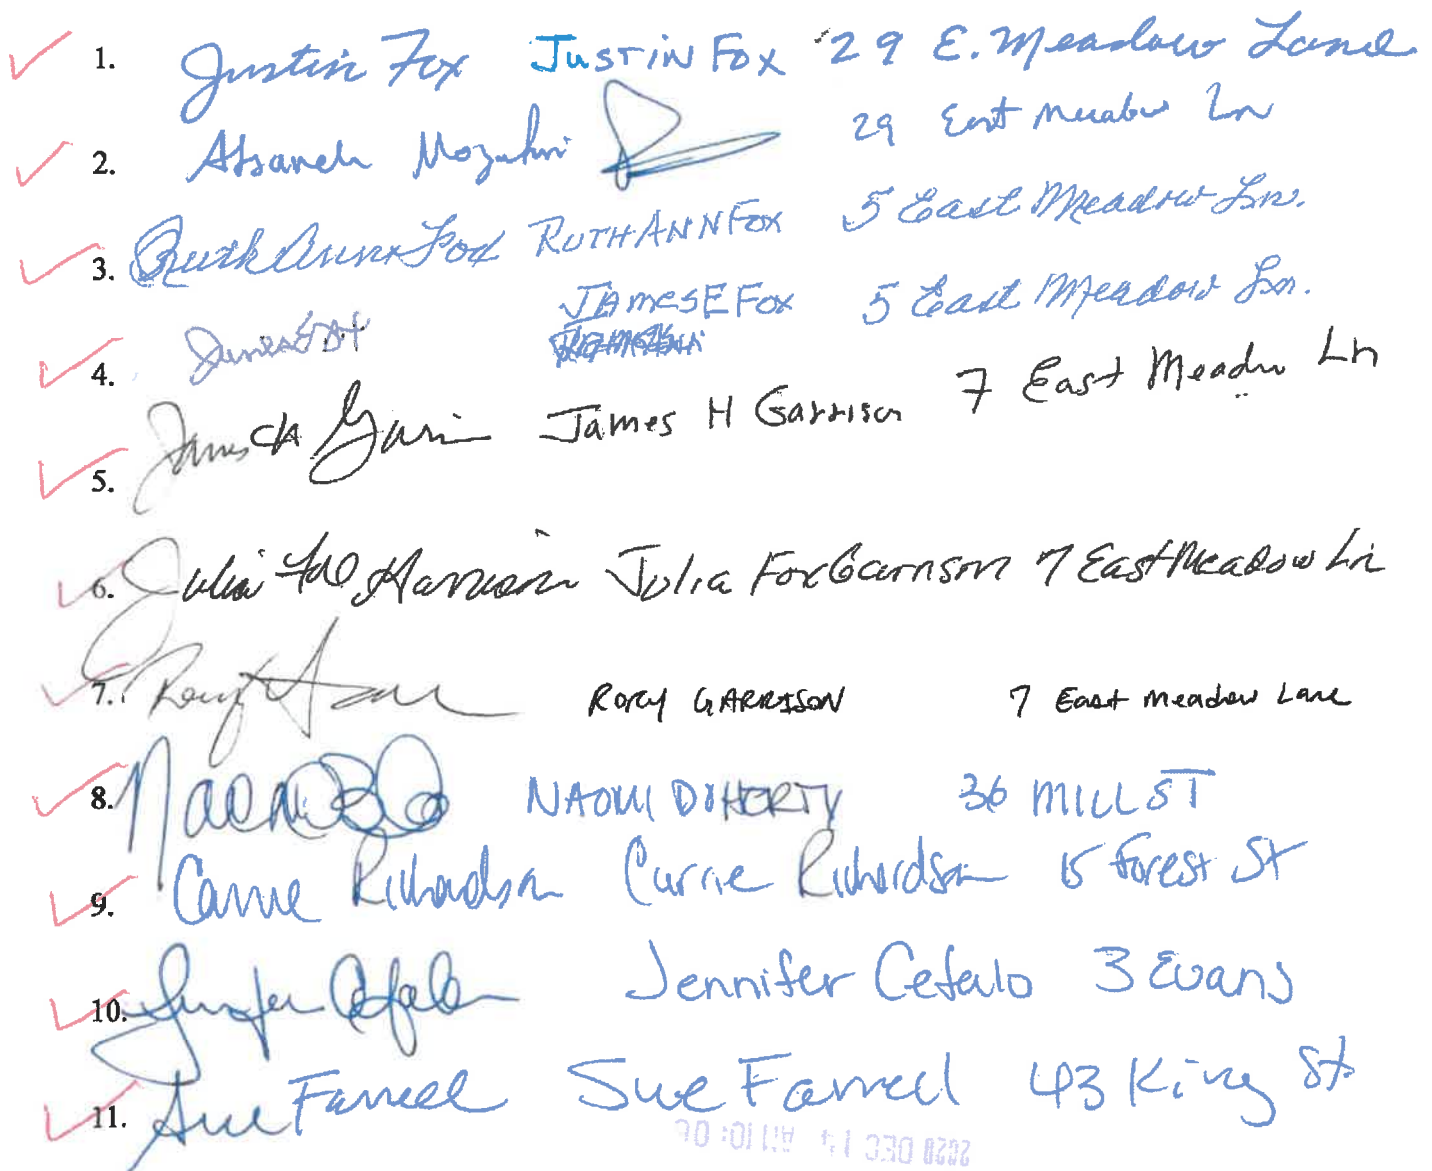 1. Justin Fox JUSTIN FOX 29 E. Meadow Lane
2. Afsaneh 29 East Meadow Ln
3. Ruth Ann Fox RUTH ANN FOX 5 East Meadow Ln.
4. James E Fox JAMES E FOX 5 East Meadow Ln.
5. James H Garrison James H Garrison 7 East Meadow Ln
6. Julia Fox Garrison Julia Fox Garrison 7 East Meadow Ln
7. Rory Garrison RORY GARRISON 7 East Meadow Lane
8. Naomi NAOMI DOHORTY 36 MILL ST
9. Carrie Richardson Carrie Richardson 15 Forest St
10. Jennifer Cefalo Jennifer Cefalo 3 Evans
11. Sue Farrell Sue Farrell 43 King St
2020 DEC 14 AM 10:06